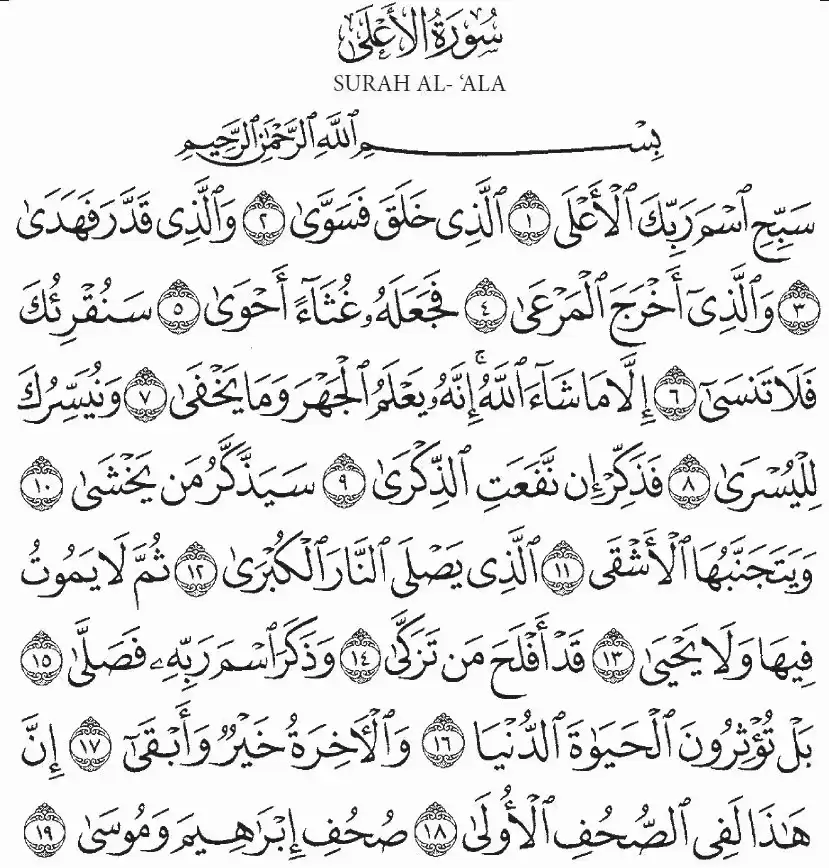 سُورَةُ الأَعْلَىٰ
SURAH AL- ‘ALA
بِسْمِ ٱللَّهِ ٱلرَّحْمَٰنِ ٱلرَّحِيمِ
سَبِّحِ ٱسْمَ رَبِّكَ ٱلْأَعْلَى ١ ٱلَّذِى خَلَقَ فَسَوَّىٰ ٢ وَٱلَّذِى قَدَّرَ فَهَدَىٰ
٣ وَٱلَّذِىٓ أَخْرَجَ ٱلْمَرْعَىٰ ٤ فَجَعَلَهُۥ غُثَآءً أَحْوَىٰ ٥ سَنُقْرِئُكَ
فَلَا تَنسَىٰٓ ٦ إِلَّا مَا شَآءَ ٱللَّهُ ۚ إِنَّهُۥ يَعْلَمُ ٱلْجَهْرَ وَمَا يَخْفَىٰ ٧ وَنُيَسِّرُكَ
لِلْيُسْرَىٰ ٨ فَذَكِّرْ إِن نَّفَعَتِ ٱلذِّكْرَىٰ ٩ سَيَذَّكَّرُ مَن يَخْشَىٰ ١٠
وَيَتَجَنَّبُهَا ٱلْأَشْقَى ١١ ٱلَّذِى يَصْلَى ٱلنَّارَ ٱلْكُبْرَىٰ ١٢ ثُمَّ لَا يَمُوتُ
فِيهَا وَلَا يَحْيَىٰ ١٣ قَدْ أَفْلَحَ مَن تَزَكَّىٰ ١٤ وَذَكَرَ ٱسْمَ رَبِّهِۦ فَصَلَّىٰ ١٥
بَلْ تُؤْثِرُونَ ٱلْحَيَوٰةَ ٱلدُّنْيَا ١٦ وَٱلْأَخِرَةُ خَيْرٌ وَأَبْقَىٰٓ ١٧ إِنَّ
هَٰذَا لَفِى ٱلصُّحُفِ ٱلْأُولَىٰ ١٨ صُحُفِ إِبْرَٰهِيمَ وَمُوسَىٰ ١٩